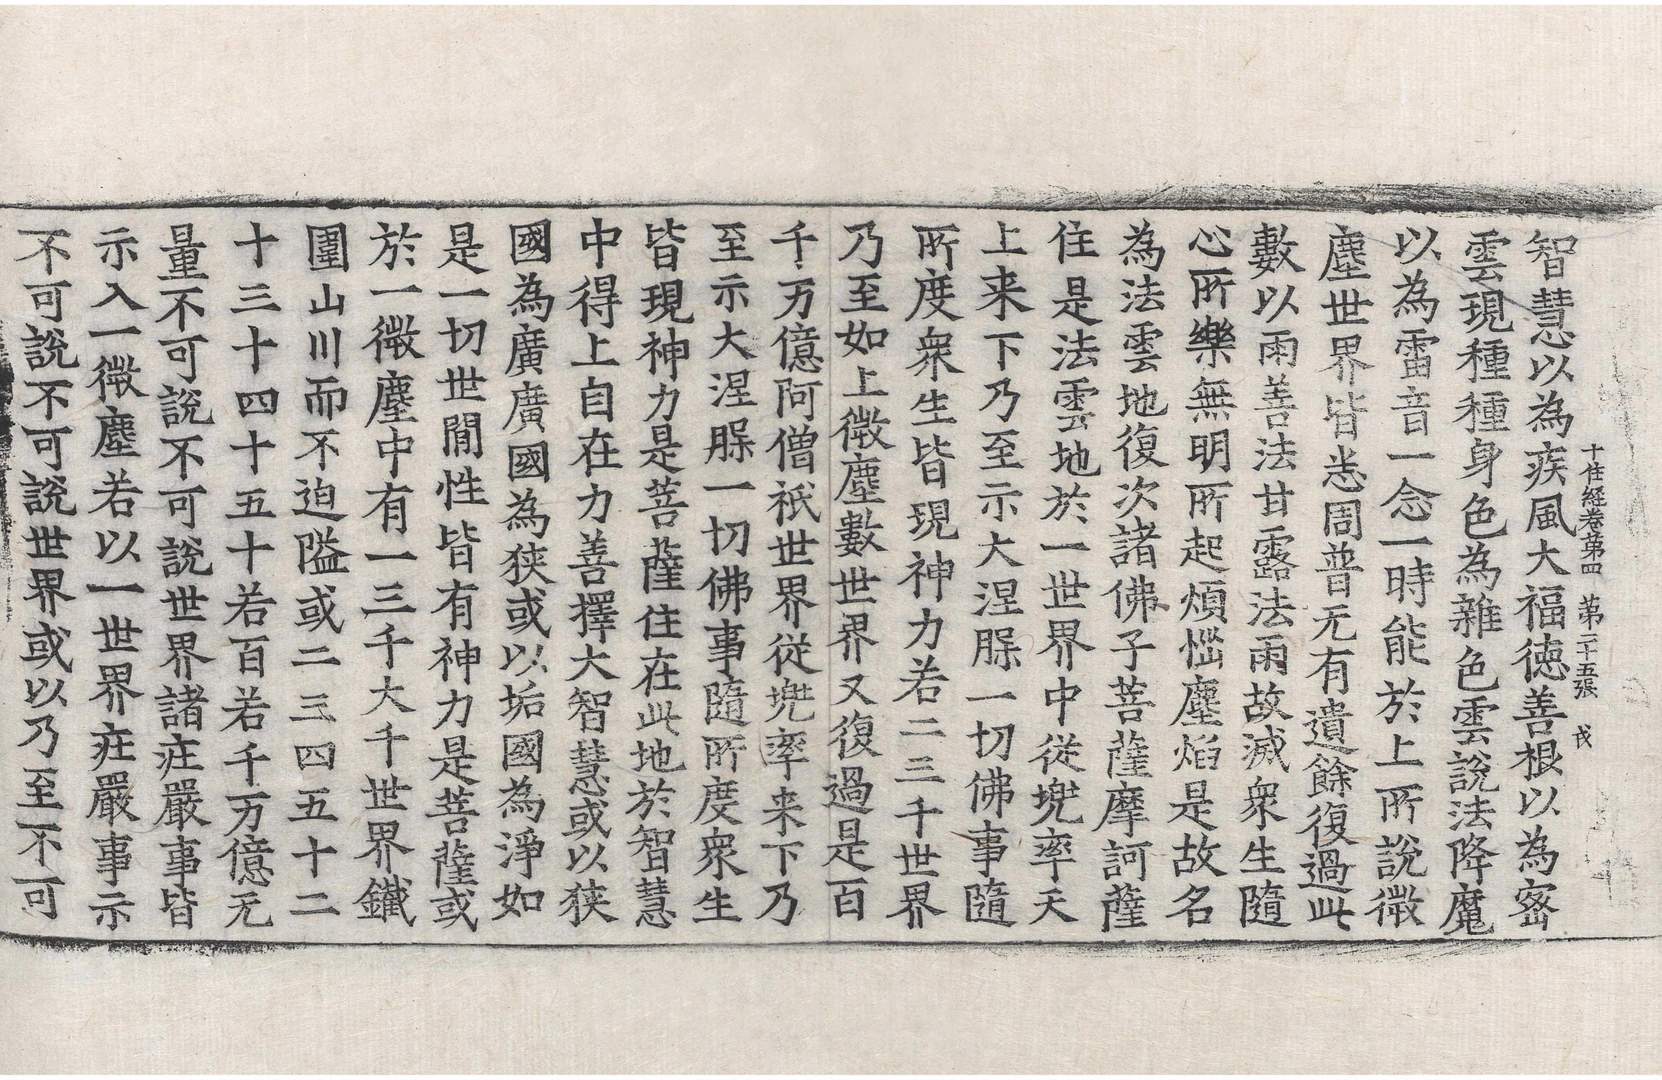 十住經卷第四　第二十五張　戌
智慧以為疾風大福德善根以為密
雲現種種身色為雜色雲說法降魔
以為雷音一念一時能於上所說微
塵世界皆悉周普无有遺餘復過此
數以雨善法甘露法雨故滅衆生隨
心所樂無明所起煩惱塵焰是故名
為法雲地復次諸佛子菩薩摩訶薩
住是法雲地於一世界中從兜率天
上来下乃至示大涅槃一切佛事隨
所度衆生皆現神力若二三千世界
乃至如上微塵數世界又復過是百
千万億阿僧祇世界從兜率来下乃
至示大涅槃一切佛事隨所度衆生
皆現神力是菩薩住在此地於智慧
中得上自在力善擇大智慧或以狹
國為廣廣國為狹或以垢國為淨如
是一切世閒性皆有神力是菩薩或
於一微塵中有一三千大千世界鐵
圍山川而不迫隘或二三四五十二
十三十四十五十若百若千万億无
量不可說不可說世界諸莊嚴事皆
示入一微塵若以一世界莊嚴事示
不可說不可說世界或以乃至不可